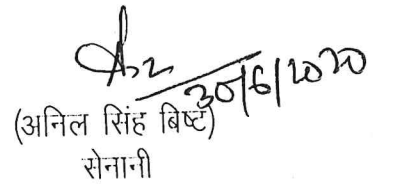 30/6/2020
(अनिल सिंह बिष्ट)
सेनानी